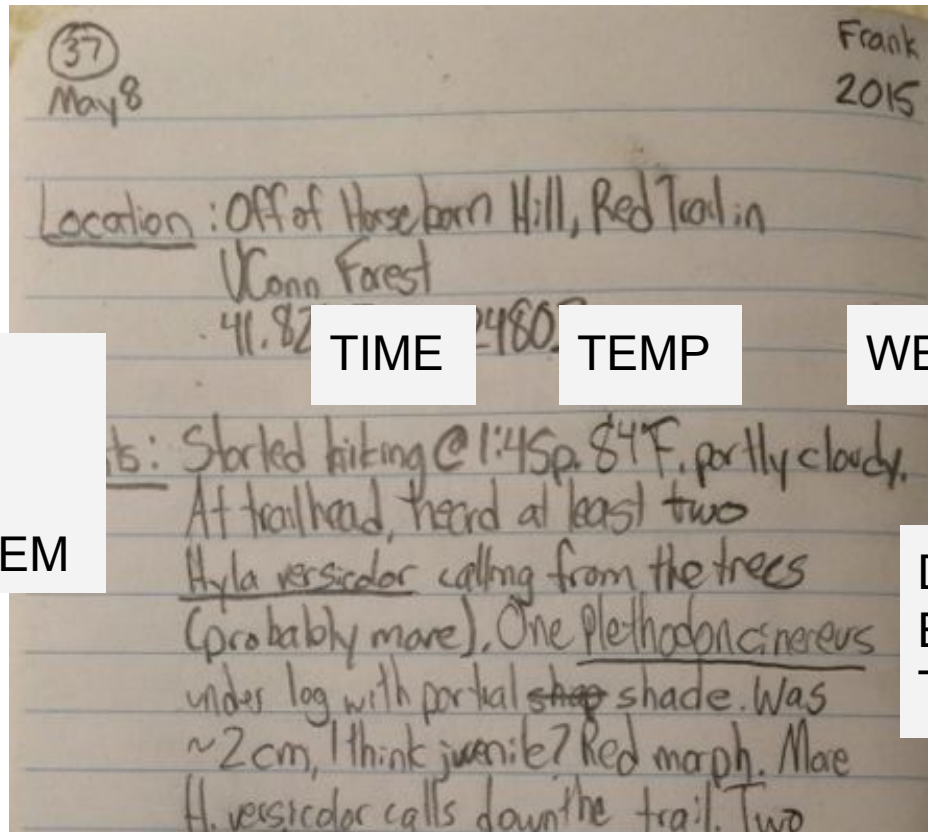 37 Frank
May 8 2015
Location: Off of Horsebarn Hill, Red Trail in
UConn Forest
41.82 2480
TIME TEMP WE
ts: Started hiking @ 1:45p. 84°F, partly cloudy.
At trailhead, heard at least two
EM
Hyla versicolor calling from the trees
(probably more). One Plethodon cinereus
under log with partial shade. Was
~2cm, I think juvenile? Red morph. More
H. versicolor calls down the trail. Two